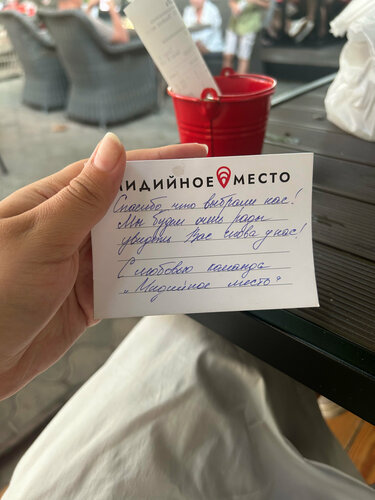 МИДИЙНОЕ МЕСТО
Спасибо, что выбрали нас!
Мы будем очень рады
увидеть Вас снова у нас!
С любовью команда
„Мидийное место"